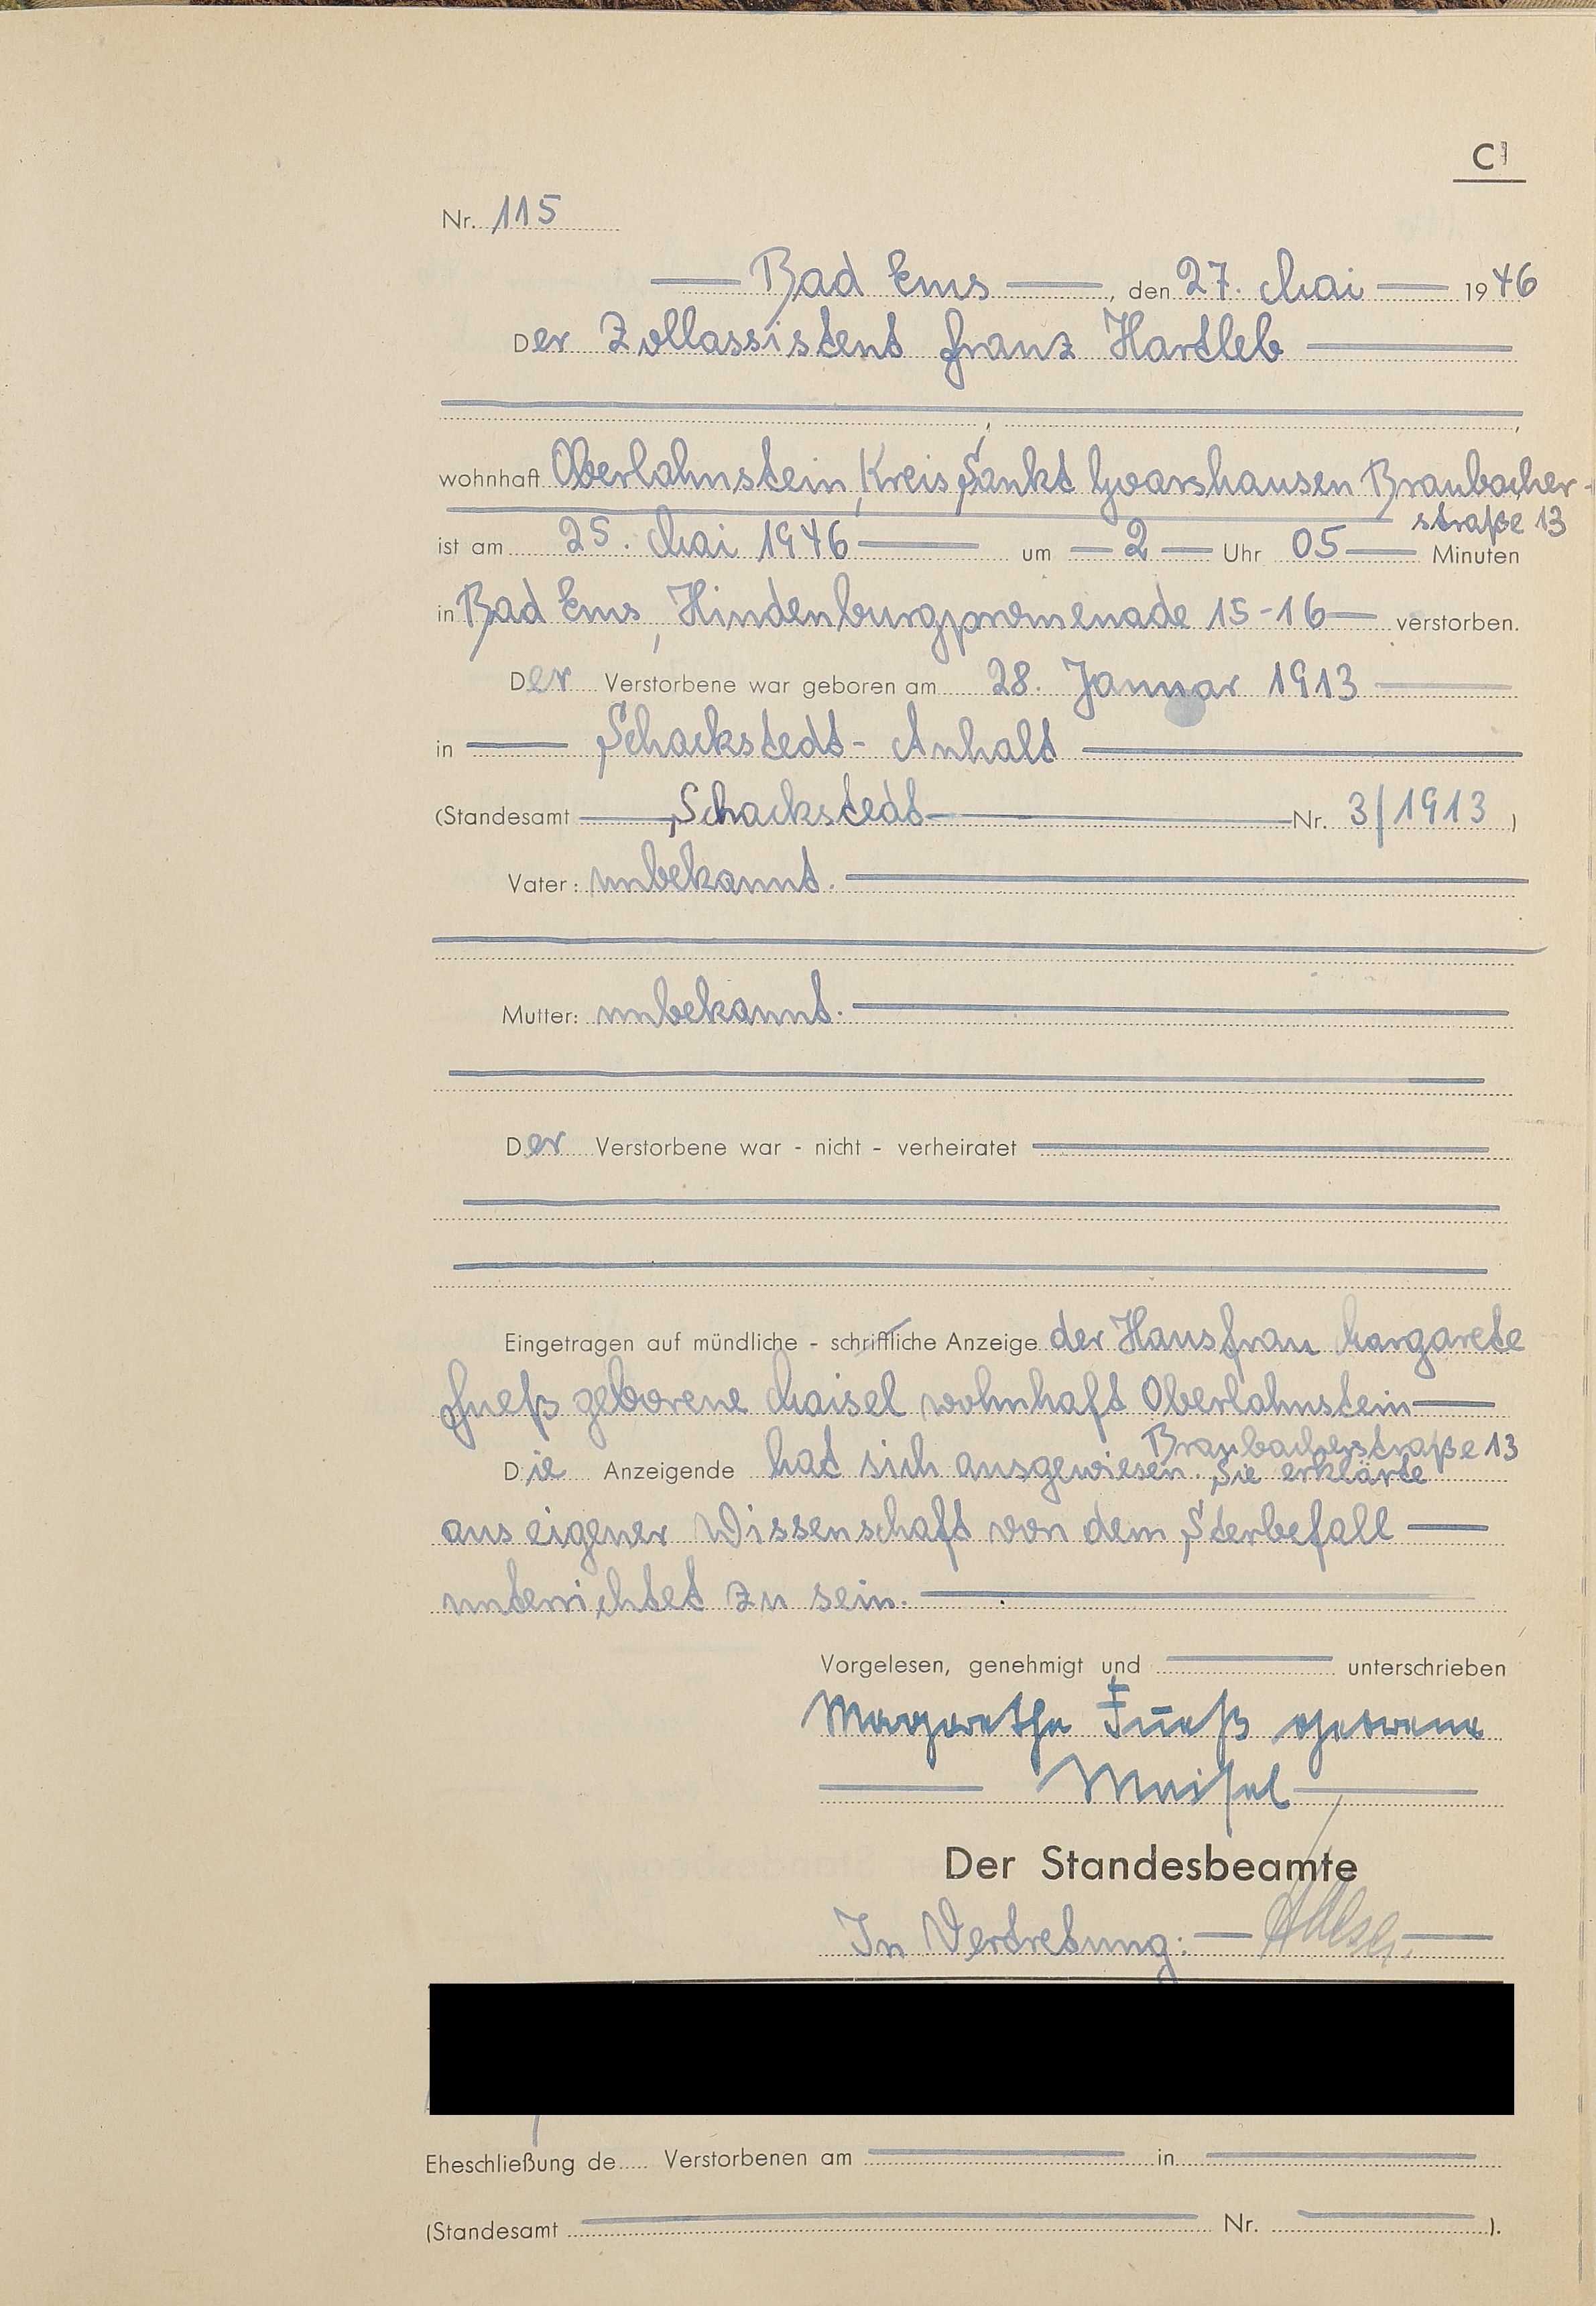 C
Nr. 115
Bad Ems, den 27. Mai 1946
Der Zollassistent Franz Hartleb
,
wohnhaft Oberlahnstein, Kreis Sankt Goarshausen Braubacher-
straße 13
ist am 25. Mai 1946 um 2 Uhr 05 Minuten
in Bad Ems, Hindenburgpromenade 15-16 verstorben.
Der Verstorbene war geboren am 28. Januar 1913
in Schackstedt-Anhalt
(Standesamt Schackstedt Nr. 3/1913)
Vater: unbekannt.
Mutter: unbekannt.
Der Verstorbene war - nicht - verheiratet
Eingetragen auf mündliche - schriftliche Anzeige der Hausfrau Margarete
Fueß geborene Maisel wohnhaft Oberlahnstein
Braubacherstraße 13
Die Anzeigende hat sich ausgewiesen. Sie erklärte
aus eigener Wissenschaft von dem Sterbefall
unterrichtet zu sein.
Vorgelesen, genehmigt und unterschrieben
Margarethe Fueß geborene
Maisel
Der Standesbeamte
In Vertretung:
Eheschließung de Verstorbenen am in
(Standesamt Nr. ).